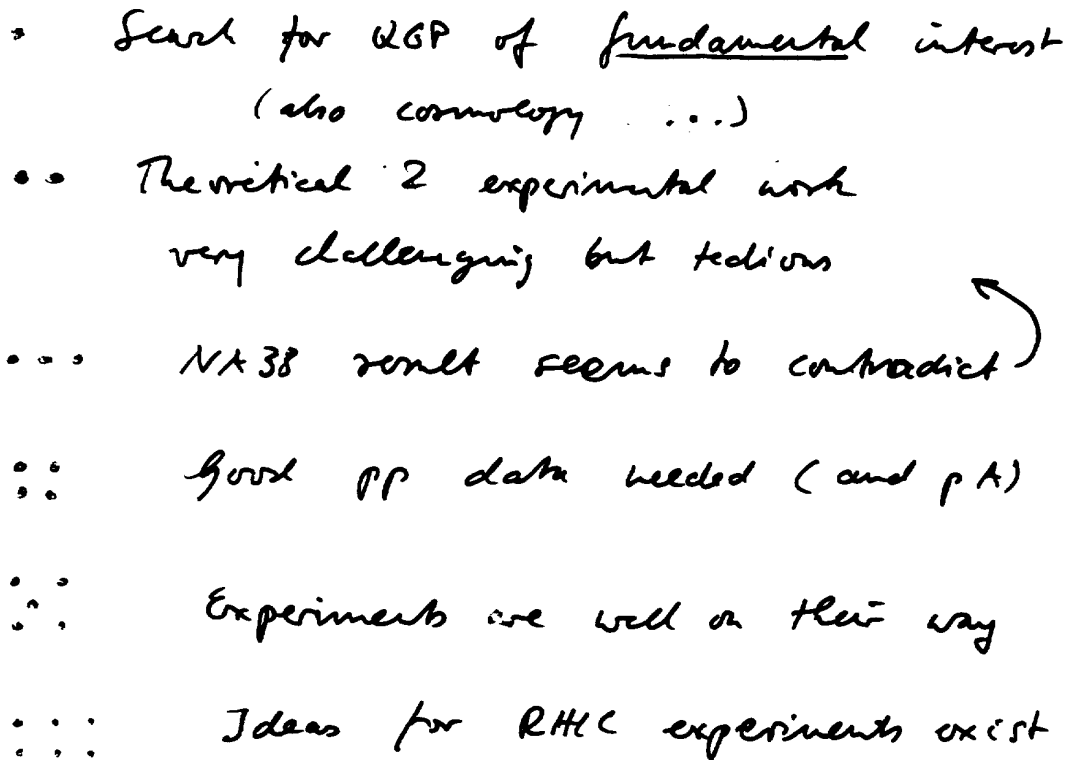 • Search for QGP of fundamental interest
(also cosmology ...)
•• Theoretical & experimental work
very challenging but tedious
••• NA38 result seems to contradict
:: Good pp data needed (and pA)
Experiments are well on their way
::: Ideas for RHIC experiments exist